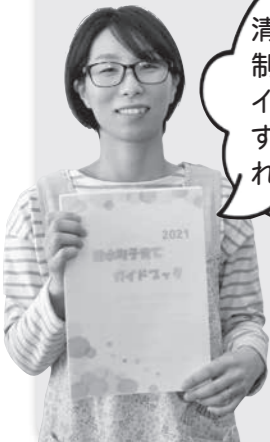 清
制
イ
す
れ
2021
清水町子育て
ガイドブック